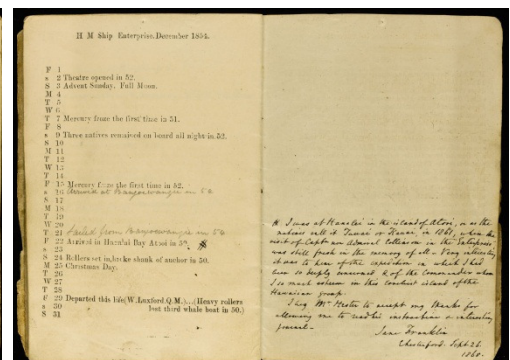 H M Ship Enterprise. December 1854.
F 1
s 2 Theatre opened in 52.
S 3 Advent Sunday. Full Moon.
M 4
T 5
W 6
T 7 Mercury froze the first time in 51.
F 8
s 9 Three natives remained on board all night in 52.
S 10
M 11
T 12
W 13
T 14
F 15 Mercury froze the first time in 52.
s 16 Arrived at Banjoewangie in 54
S 17
M 18
T 19
W 20
T 21 Sailed from Banjoewangie in 54
F 22 Arrived in Hanalai Bay Atooi in 50.
s 23
S 24 Rollers set in, broke shank of anchor in 50.
M 25 Christmas Day.
T 26
W 27
T 28
F 29 Departed this life (W. Luxford. Q.M.)...(Heavy rollers
s 30 lost third whale boat in 50.)
S 31
I was at Hanalei in the island of Atooi, or as the
natives call it Tauai or Kauai, in 1861, when the
visit of Captn now Admiral Collinson in the Enterprise,
was still fresh in the memory of all - Very interesting
it was to hear of the expedition in which I had
been so deeply concerned & of the Commander whom
I so much esteem in this loveliest island of the
Hawaiian group.
I beg Mr to accept my thanks for
allowing me to read his instructive & interesting
journal -
Jane Franklin
Sept. 26